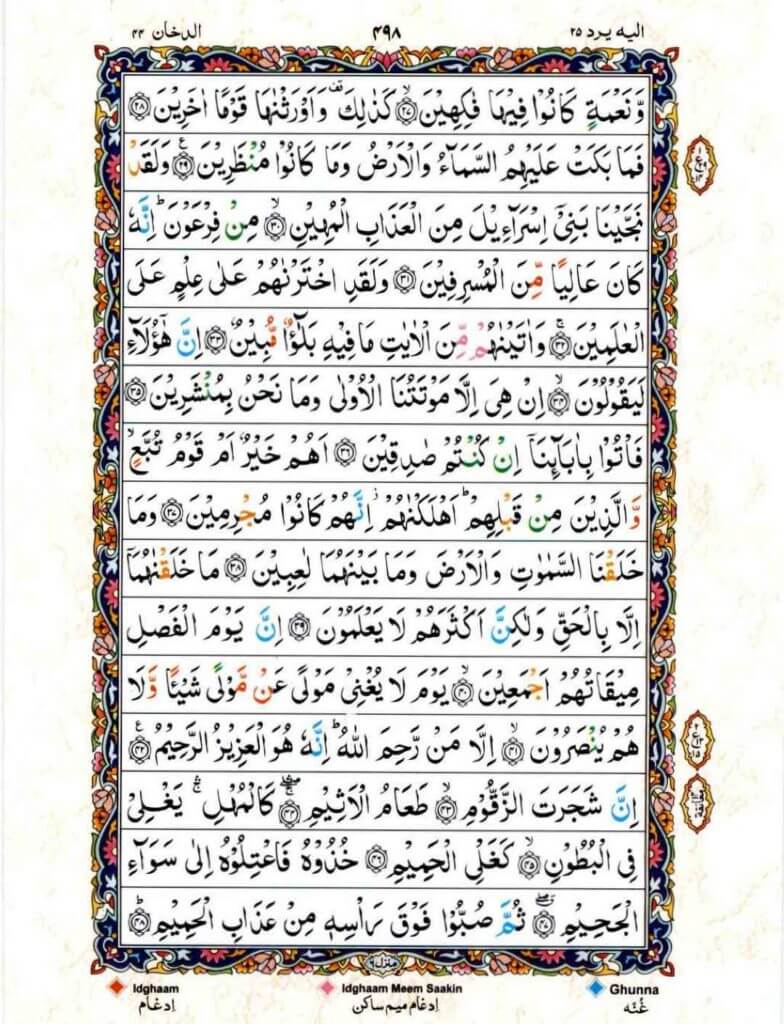 الیه یرد ۲۵ ۴۹۸ الدخان ۴۴
وَّنَعْمَةٍ كَانُوْا فِيْهَا فٰكِهِيْنَ ۙ﴿۲۷﴾ كَذٰلِكَ ۫ وَاَوْرَثْنٰهَا قَوْمًا اٰخَرِيْنَ ﴿۲۸﴾
فَمَا بَكَتْ عَلَيْهِمُ السَّمَآءُ وَالْاَرْضُ وَمَا كَانُوْا مُنْظَرِيْنَ ﴿۲۹﴾ وَلَقَدْ
نَجَّيْنَا بَنِيْۤ اِسْرَآءِيْلَ مِنَ الْعَذَابِ الْمُهِيْنِ ۙ﴿۳۰﴾ مِنْ فِرْعَوْنَ ؕ اِنَّهٗ
كَانَ عَالِيًا مِّنَ الْمُسْرِفِيْنَ ﴿۳۱﴾ وَلَقَدِ اخْتَرْنٰهُمْ عَلٰى عِلْمٍ عَلَى
الْعٰلَمِيْنَ ۚ﴿۳۲﴾ وَاٰتَيْنٰهُمْ مِّنَ الْاٰيٰتِ مَا فِيْهِ بَلٰٓؤٌا مُّبِيْنٌ ﴿۳۳﴾ اِنَّ هٰٓؤُلَآءِ
لَيَقُوْلُوْنَ ۙ﴿۳۴﴾ اِنْ هِيَ اِلَّا مَوْتَتُنَا الْاُوْلٰى وَمَا نَحْنُ بِمُنْشَرِيْنَ ﴿۳۵﴾
فَاْتُوْا بِاٰبَآئِنَاۤ اِنْ كُنْتُمْ صٰدِقِيْنَ ﴿۳۶﴾ اَهُمْ خَيْرٌ اَمْ قَوْمُ تُبَّعٍ ۙ
وَّالَّذِيْنَ مِنْ قَبْلِهِمْ ؕ اَهْلَكْنٰهُمْ ۫ اِنَّهُمْ كَانُوْا مُجْرِمِيْنَ ﴿۳۷﴾ وَمَا
خَلَقْنَا السَّمٰوٰتِ وَالْاَرْضَ وَمَا بَيْنَهُمَا لٰعِبِيْنَ ﴿۳۸﴾ مَا خَلَقْنٰهُمَاۤ
اِلَّا بِالْحَقِّ وَلٰكِنَّ اَكْثَرَهُمْ لَا يَعْلَمُوْنَ ﴿۳۹﴾ اِنَّ يَوْمَ الْفَصْلِ
مِيْقَاتُهُمْ اَجْمَعِيْنَ ۙ﴿۴۰﴾ يَوْمَ لَا يُغْنِيْ مَوْلًى عَنْ مَّوْلًى شَيْئًا وَّلَا
هُمْ يُنْصَرُوْنَ ۙ﴿۴۱﴾ اِلَّا مَنْ رَّحِمَ اللّٰهُ ؕ اِنَّهٗ هُوَ الْعَزِيْزُ الرَّحِيْمُ ﴿۴۲﴾
اِنَّ شَجَرَتَ الزَّقُّوْمِ ۙ﴿۴۳﴾ طَعَامُ الْاَثِيْمِ ﴿۴۴﴾ كَالْمُهْلِ ۛۚ يَغْلِيْ
فِي الْبُطُوْنِ ۙ﴿۴۵﴾ كَغَلْيِ الْحَمِيْمِ ﴿۴۶﴾ خُذُوْهُ فَاعْتِلُوْهُ اِلٰى سَوَآءِ
الْجَحِيْمِ ﴿۴۷﴾ ثُمَّ صُبُّوْا فَوْقَ رَاْسِهٖ مِنْ عَذَابِ الْحَمِيْمِ ؕ﴿۴۸﴾
Idghaam Idghaam Meem Saakin Ghunna
اِدغام اِدغام میم ساکن غُنّه